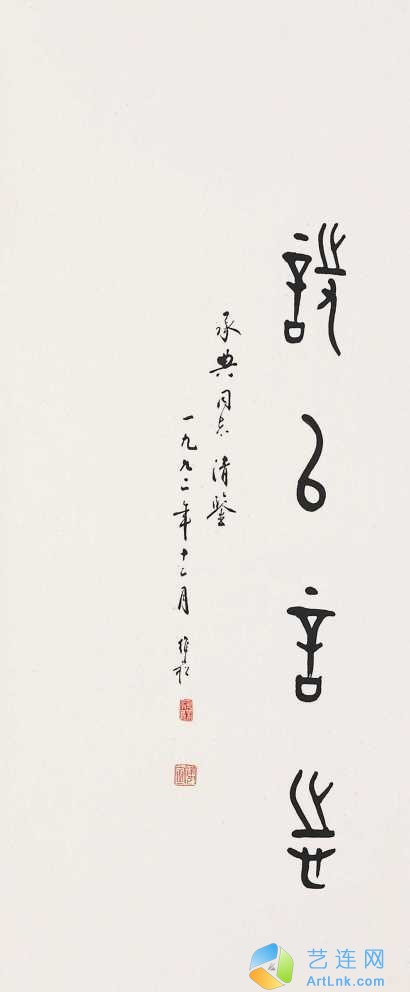 詩以言志
承典同志清鉴
一九九二年十二月
艺连网
ArtLnk.com